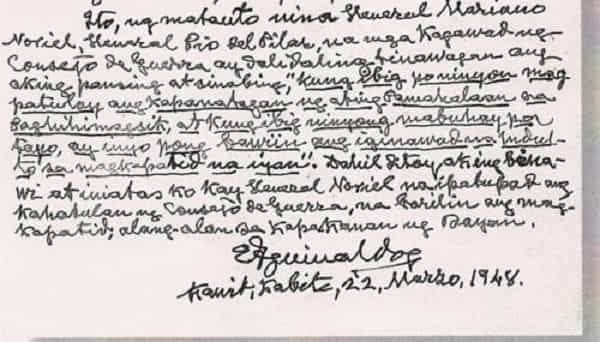 Ito, ng matanto nina General Mariano
Noriel, General Pio del Pilar, na mga Kagawad ng
Consejo de Guerra ay dalidaling tinawagan ang
aking pansing at sinabing, "kung ibig po ninyong mag
patuloy ang kapanatagan ng ating Pamahalaan sa
Paghihimagsik, at kung ibig ninyong mabuhay pa
tayo, ay inyo pong bawiin ang iginawad na Indul-
to sa magkapatid na iyan". Dahil dito, aking bina-
wi at iniatas ko kay General Noriel na ipatupad ang
kahatulan ng Consejo de Guerra, na barilin ang mag-
kapatid, alang-alan sa kapakanan ng Bayan.
EAguinaldo
Kawit, Kabite, 22, Marzo, 1948.